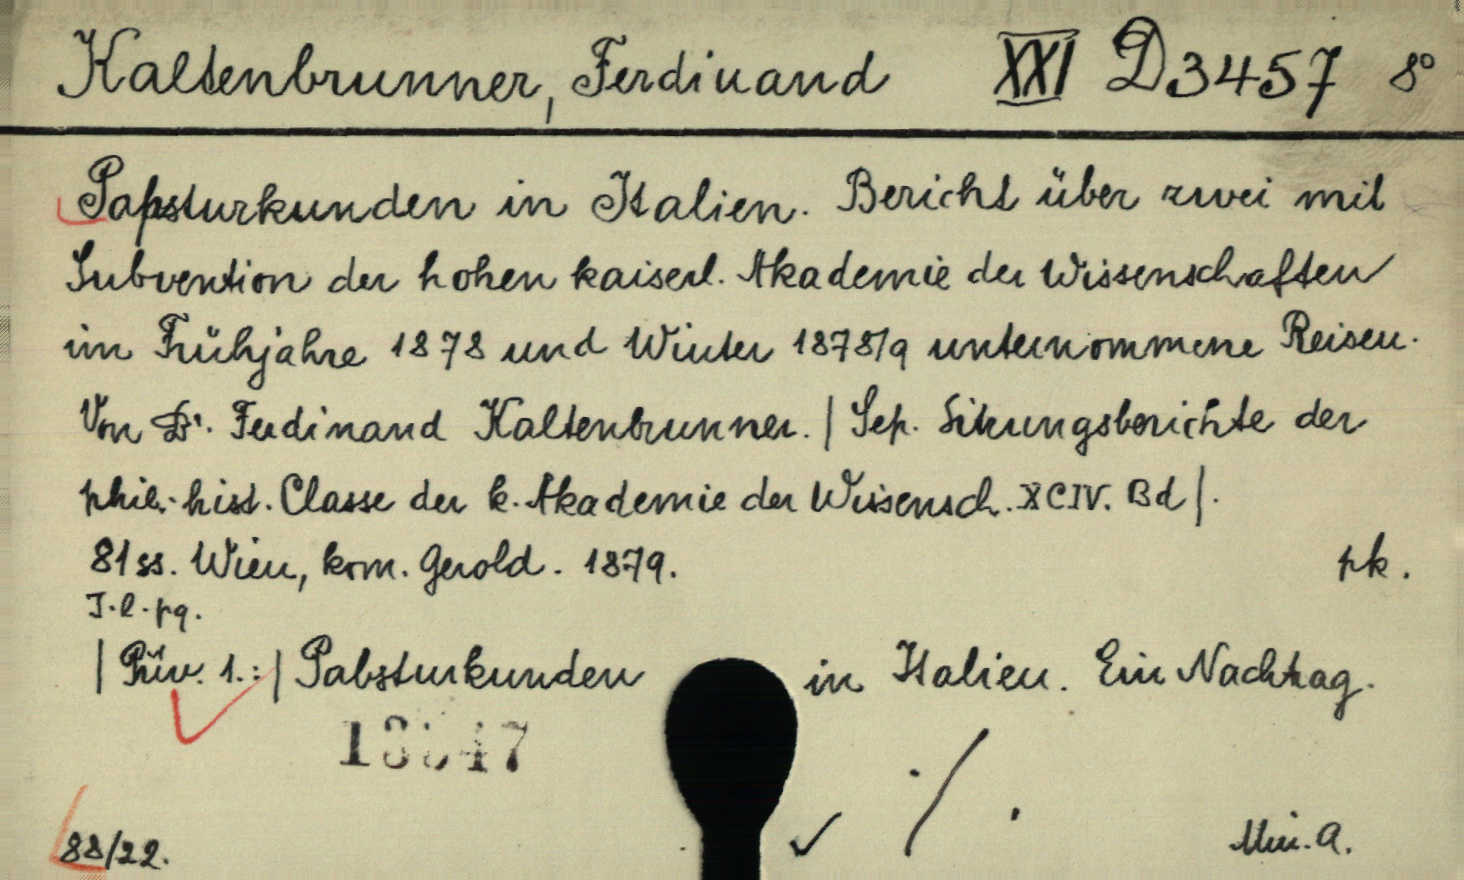 Kaltenbrunner, Ferdinand XXI D 3457 8°
Papsturkunden in Italien. Bericht über zwei mit
Subvention der hohen kaiserl. Akademie der Wissenschaften
im Frühjahre 1878 und Winter 1878/9 unternommene Reisen.
Von Dr. Ferdinand Kaltenbrunner. | Sep. Sitzungsberichte der
phil.-hist. Classe der k. Akademie der Wissensch. XCIV. Bd |.
81 ss. Wien, kom. Gerold. 1879. pk.
J. l. pg.
| Přív. 1.: | Pabsturkunden in Italien. Ein Nachtrag.
88/22. Min. A.